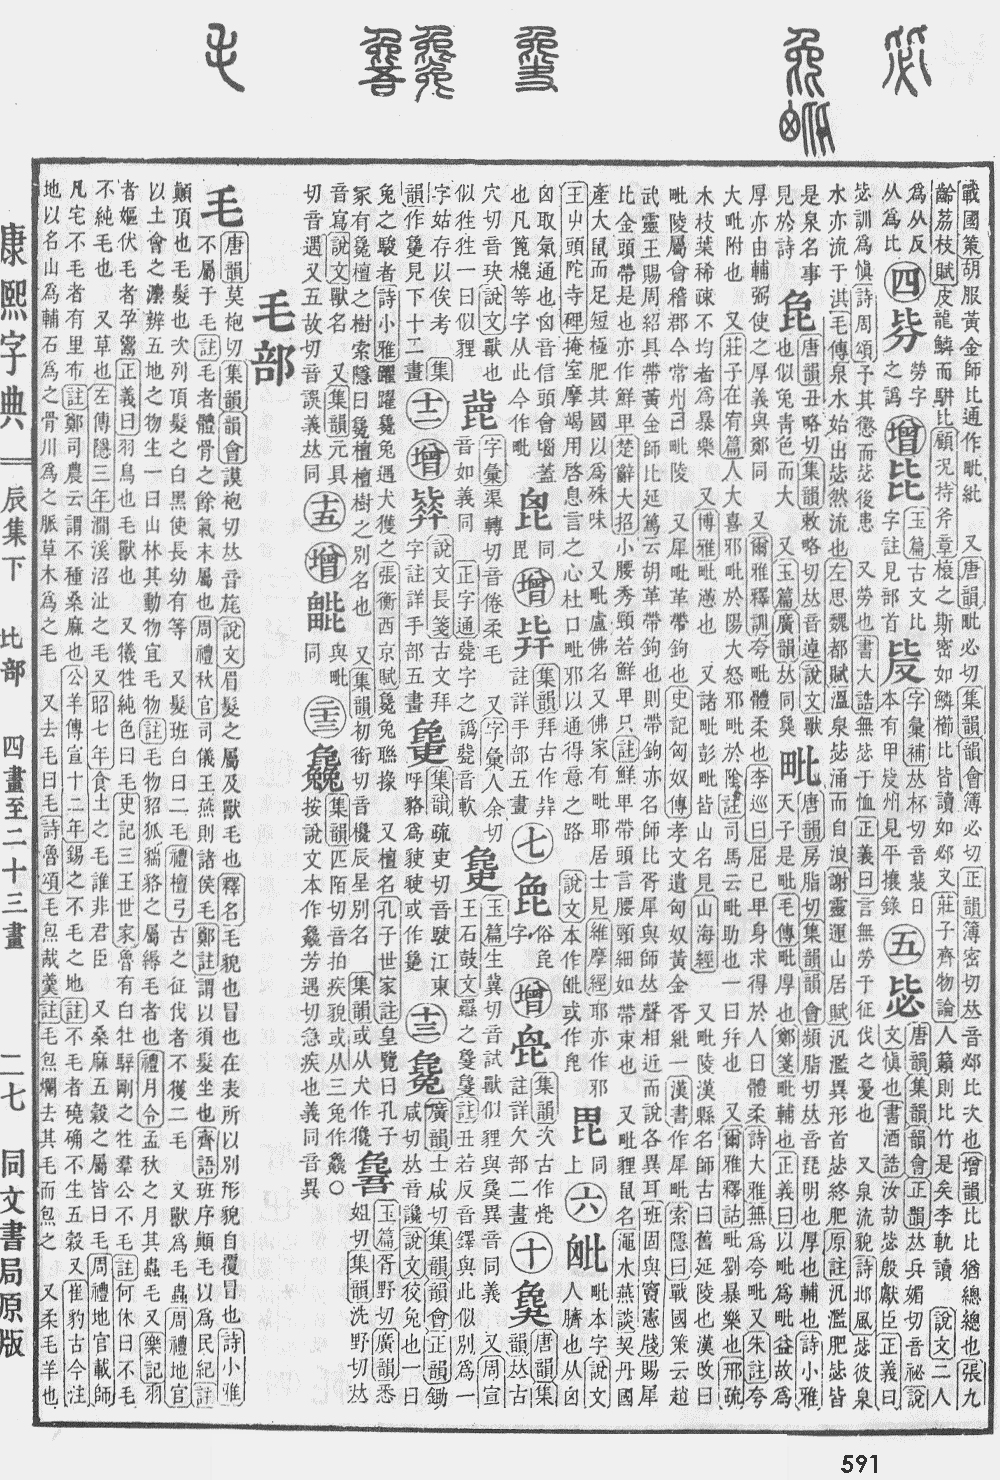 戰國策胡服黃金師比通作毗紕　又唐韻毗必切集韻韻會簿必切正韻簿密切𠀤音邲比次也增韻比比猶總總也張九
齡荔枝賦皮龍鱗而駢比顧況持斧章榱之斯密如鱗櫛比皆讀如邲又莊子齊物論人籟則比竹是矣李軌讀　說文二人
為从反从為比　四　勞字之譌　增　玉篇古文比字註見部首　字彙補𠀤杯切音裴日本有甲　州見平攘錄　五　毖　唐韻集韻韻會正韻𠀤兵媚切音祕說文愼也書酒誥汝劼毖殷獻臣正義曰
毖訓為愼詩周頌予其懲而毖後患　又勞也書大誥無毖于恤正義曰言無勞于征伐之憂也　又泉流貌詩邶風毖彼泉
水亦流于淇毛傳泉水始出毖然流也左思魏都賦溫泉毖涌而自浪謝靈運山居賦汎濫異形首毖終肥原註汎濫肥毖皆
是泉名事見於詩　㲋　唐韻丑略切集韻敕略切𠀤音逴說文獸也似兔靑色而大　又玉篇廣韻𠀤同㚟　毗　唐韻房脂切集韻韻會頻脂切𠀤音琵明也厚也輔也詩小雅天子是毗毛傳毗厚也鄭箋毗輔也正義曰以毗為毗益故為
厚亦由輔弼使之厚義與鄭同　又爾雅釋訓夸毗體柔也李巡曰屈己卑身求得於人曰體柔詩大雅無為夸毗又朱註夸
大毗附也　又莊子在宥篇人大喜邪毗於陽大怒邪毗於陰註司馬云毗助也一曰幷也　又爾雅釋詁毗劉暴樂也邢疏
木枝葉稀疎不均者為暴樂　又博雅毗懣也　又諸毗彭毗皆山名見山海經　又毗陵漢縣名師古曰舊延陵也漢改曰
毗陵屬會稽郡今常州曰毗陵　又犀毗革帶鉤也史記匈奴傳孝文遺匈奴黃金胥紕一漢書作犀毗索隱曰戰國策云趙
武靈王賜周紹具帶黃金師比延篤云胡革帶鉤也則帶鉤亦名師比胥犀與師𠀤聲相近而說各異耳班固與竇憲牋賜犀
比金頭帶是也亦作鮮卑楚辭大招小腰秀頸若鮮卑只註鮮卑帶頭言腰頸細如帶束也　又毗貍鼠名澠水燕談契丹國
產大鼠而足短極肥其國以為殊味　又毗盧佛名又佛家有毗耶居士見維摩經耶亦作邪　毘　同上　六　毗本字說文人臍也从囟
王屮頭陀寺碑掩室摩竭用啓息言之心杜口毗邪以通得意之路　說文本作毗或作
囟取氣通也囟音信頭會匘蓋也凡篦槐等字从此今作毗　同毘　增　集韻拜古作　註詳手部五畫　七　俗㲋字　增　集韻次古作　註詳欠部二畫　十　㚟　唐韻集韻𠀤古
穴切音玦說文獸也似狌狌一曰似貍　字彙渠轉切音倦柔毛　又字彙人余切音如義同正字通　字之譌　音軟　玉篇生冀切音試獸似貍與㚟異音同義　又周宣王石鼓文
字姑存以俟考　集韻作　見下十二畫　十二　增　說文長箋古文拜字註詳手部五畫　集韻疏吏切音駛江東呼貉為駛駛或作　十三　毚　廣韻士咸切集韻韻會正韻鋤咸切𠀤音讒說文狡兔也一曰
兔之駿者詩小雅躍躍毚兔遇犬獲之張衡西京賦毚兔聯猭　又檀名孔子世家註皇覽曰孔子
冢有毚檀之樹索隱曰毚檀檀樹之別名也　又集韻初銜切音欃辰星別名　集韻或从犬作　　玉篇胥野切廣韻悉姐切集韻洗野切𠀤
音寫說文獸名　又集韻元具切音遇又五故切音誤義𠀤同　十五　增　與毗同　二十三　集韻匹陌切音拍疾貌或从三兔作　按說文本作　芳遇切急疾也義同音異
毛部
毛　唐韻莫袍切集韻韻會謨袍切𠀤音旄說文眉髮之屬及獸毛也釋名毛貌也冒也在表所以別形貌自覆冒也詩小雅
不屬于毛註毛者體骨之餘氣末屬也周禮秋官司儀王燕則諸侯毛鄭註謂以須髮坐也齊語班序顚毛以為民紀註
顚頂也毛髮也次列頂髮之白黑使長幼有等　又髮班白曰二毛禮檀弓古之征伐者不獲二毛　又獸為毛蟲周禮地官
以土會之灋辨五地之物生一曰山林其動物宜毛物註毛物貂狐貒貉之屬縟毛者也禮月令孟秋之月其蟲毛又樂記羽
者嫗伏毛者孕鬻正義曰羽鳥也毛獸也　又犧牲純色曰毛史記三王世家魯有白牡騂剛之牲羣公不毛註何休曰不毛
不純毛也　又草也左傳隱三年澗溪沼沚之毛又昭七年食土之毛誰非君臣　又桑麻五穀之屬皆曰毛周禮地官載師
凡宅不毛者有里布註鄭司農云謂不種桑麻也公羊傳宣十二年錫之不毛之地註不毛者磽确不生五穀又崔豹古今注
地以名山為輔石為之骨川為之脈草木為之毛　又去毛曰毛詩魯頌毛炰胾羹註毛炰爓去其毛而炰之　又柔毛羊也
康熙字典　辰集下　比部　四畫至二十三畫　二七　同文書局原版
591